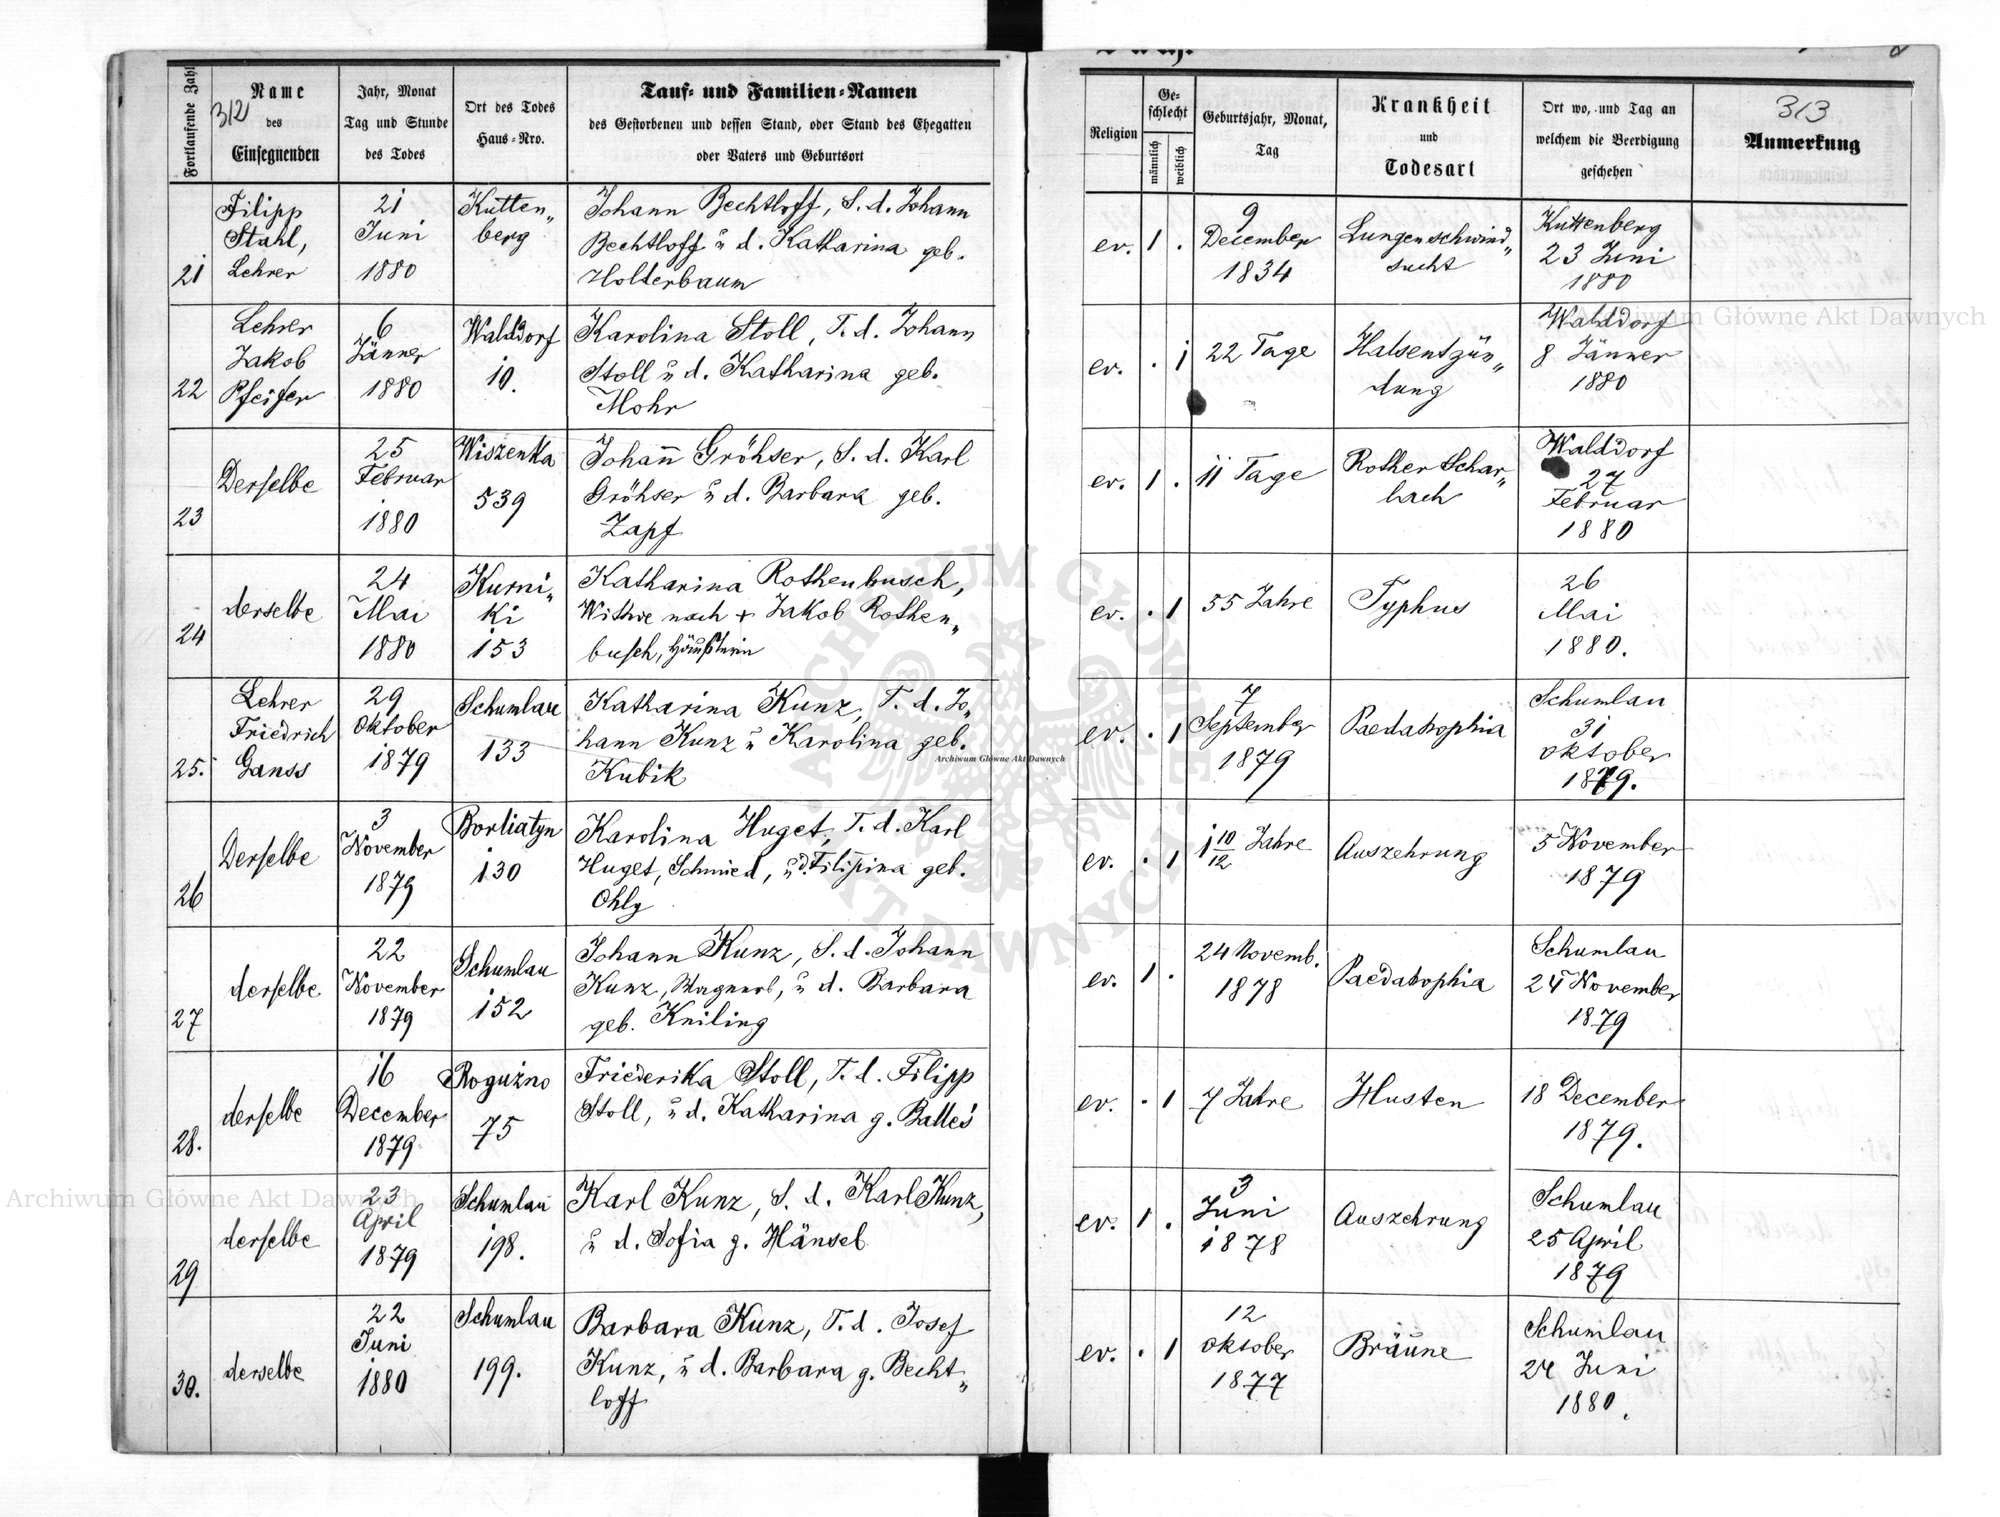 Fortlaufende Zahl
312
Name
des
Einsegnenden
Jahr, Monat
Tag und Stunde
des Todes
Ort des Todes
Haus-Nro.
Tauf- und Familien-Namen
des Gestorbenen und dessen Stand, oder Stand des Ehegatten
oder Vaters und Geburtsort
Religion
Ge-
schlecht
männlich
weiblich
Geburtsjahr, Monat,
Tag
Krankheit
und
Todesart
Ort wo, und Tag an
welchem die Beerdigung
geschehen
313
Anmerkung
21
Filipp
Stahl,
Lehrer
21
Juni
1880
Kutten„
berg
Johann Bechtloff, S. d. Johann
Bechtloff u d. Katharina geb.
Holterbaum
ev. 1 .
9
December
1834
Lungenschwind„
sucht
Kuttenberg
23 Juni
1880
22
Lehrer
Jakob
Pfeifer
6
Jänner
1880
Walddorf
10.
Karolina Stoll, T. d. Johann
Stoll u d. Katharina geb.
Mohr
ev. . 1
22 Tage
Halsentzün„
dung
Walddorf
8 Jänner
1880
23
Derselbe
25
Februar
1880
Wiszenka
539
Johan̄ Gröhser, S. d. Karl
Gröhser u d. Barbara geb.
Zapf
ev. 1 .
11 Tage
Rother Schar„
lach
Walddorf
27
Februar
1880
24
derselbe
24
Mai
1880
Kurni„
ki
153
Katharina Rothenbusch,
Witwe nach + Jakob Rothen„
busch,
ev. . 1
55 Jahre
Typhus
26
Mai
1880.
25.
Lehrer
Friedrich
Ganss
29
Oktober
1879
Schumlau
133
Katharina Kunz, T. d. Jo„
hann Kunz u Karolina geb.
Kubik
ev. . 1
7
September
1879
Paedatrophia
Schumlau
31
oktober
1879.
26
Derselbe
3
November
1879
Bortiatyn
130
Karolina Huget, T. d. Karl
Huget, Schmied, u d. Filipina geb.
Ohly
ev. . 1
1 10/12 Jahre
Auszehrung
5 November
1879
27
derselbe
22
November
1879
Schumlau
152
Johann Kunz, S. d. Johann
Kunz, Wagners, u d. Barbara
geb. Kniling
ev. 1 .
24 Novemb.
1878
Paedatrophia
Schumlau
24 November
1879
28.
derselbe
16
December
1879
Rogużno
75
Friederika Stoll, T. d. Filipp
Stoll, u d. Katharina g. Balles
ev. . 1
7 Jahre
Husten
18 December
1879.
29
derselbe
23
April
1879
Schumlau
198.
Karl Kunz, S. d. Karl Kunz,
u d. Sofia g. Hänsel
ev. 1 .
3
Juni
1878
Auszehrung
Schumlau
25 April
1879
30.
derselbe
22
Juni
1880
Schumlau
199.
Barbara Kunz, T. d. Josef
Kunz, u d. Barbara g. Becht„
loff
ev. . 1
12
oktober
1877
Bräune
Schumlau
24 Juni
1880.
Archiwum Główne Akt Dawnych
Archiwum Główne Akt Dawnych
Archiwum Główne Akt Dawnych
ARCHIWUM GŁÓWNE AKT DAWNYCH